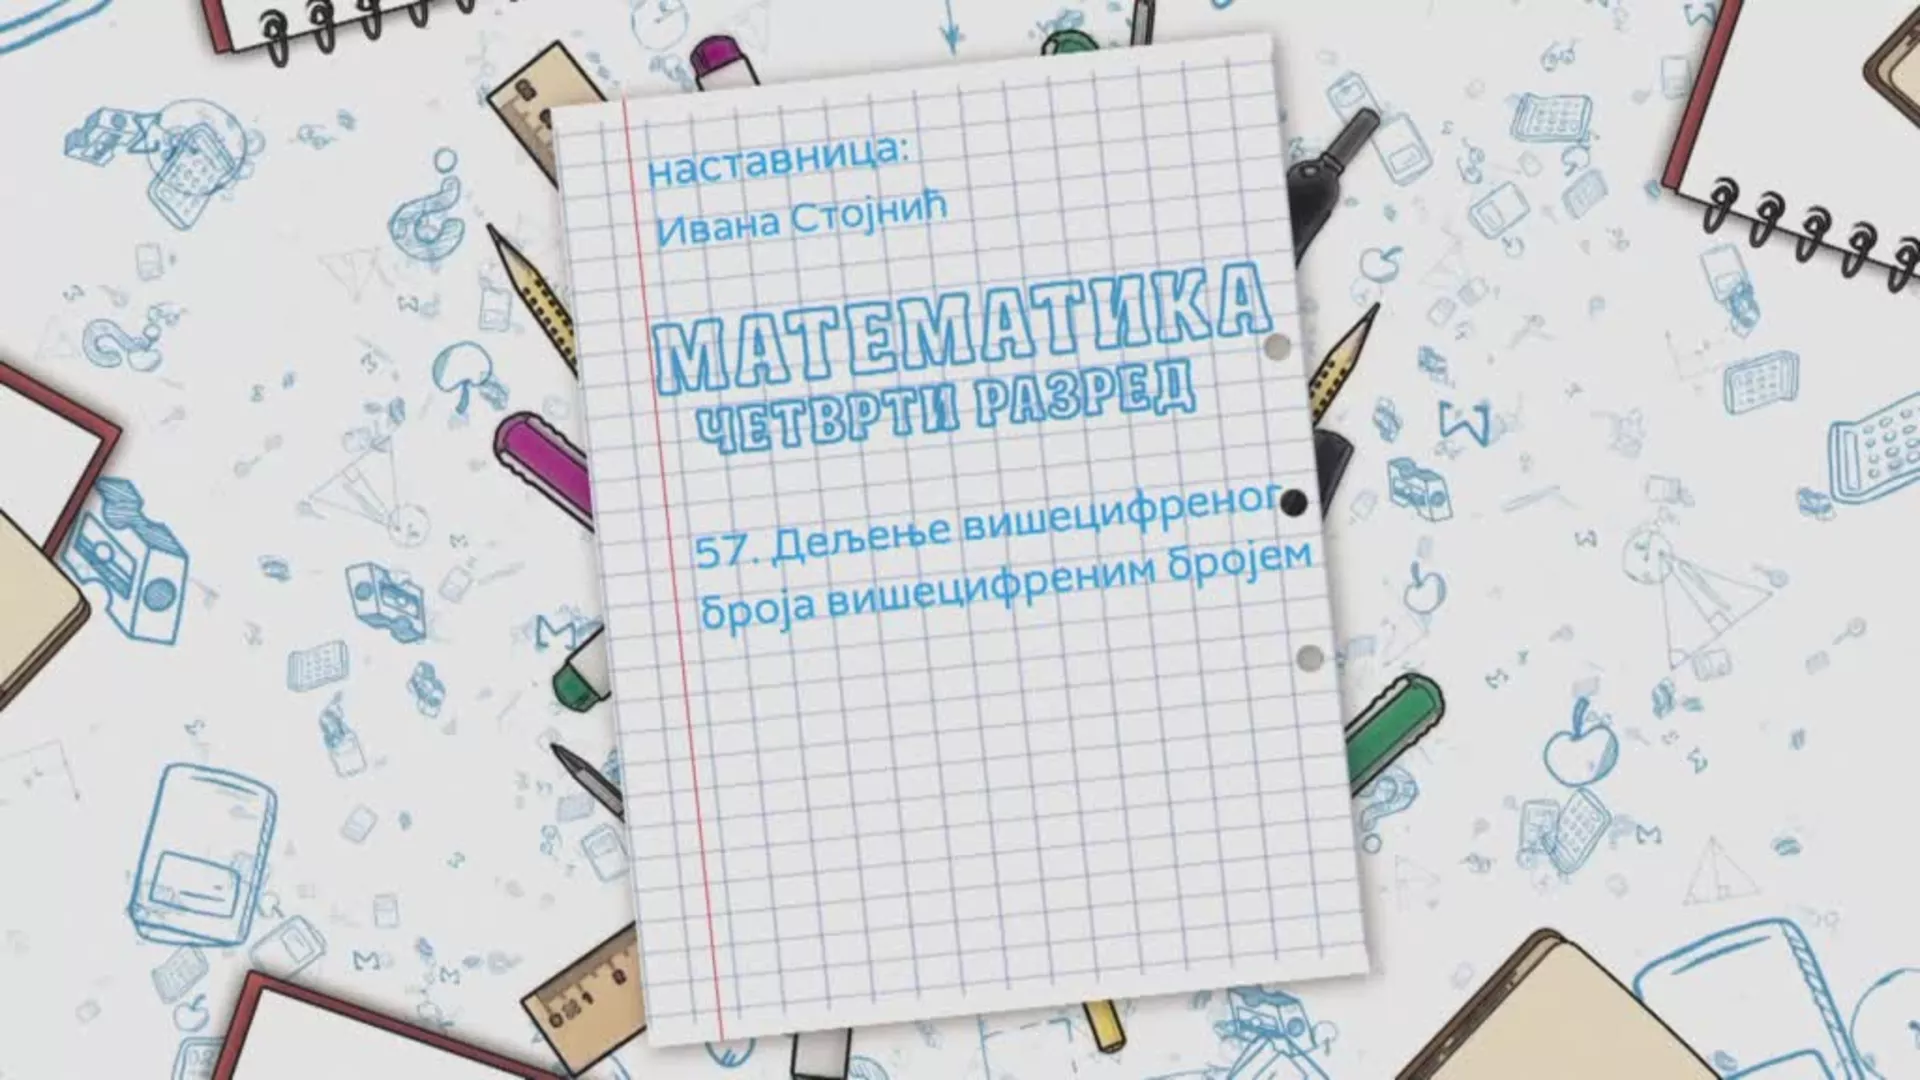 наставница:
Ивана Стојнић
МАТЕМАТИКА
ЧЕТВРТИ РАЗРЕД
57. Дељење вишецифреног
броја вишецифреним бројем